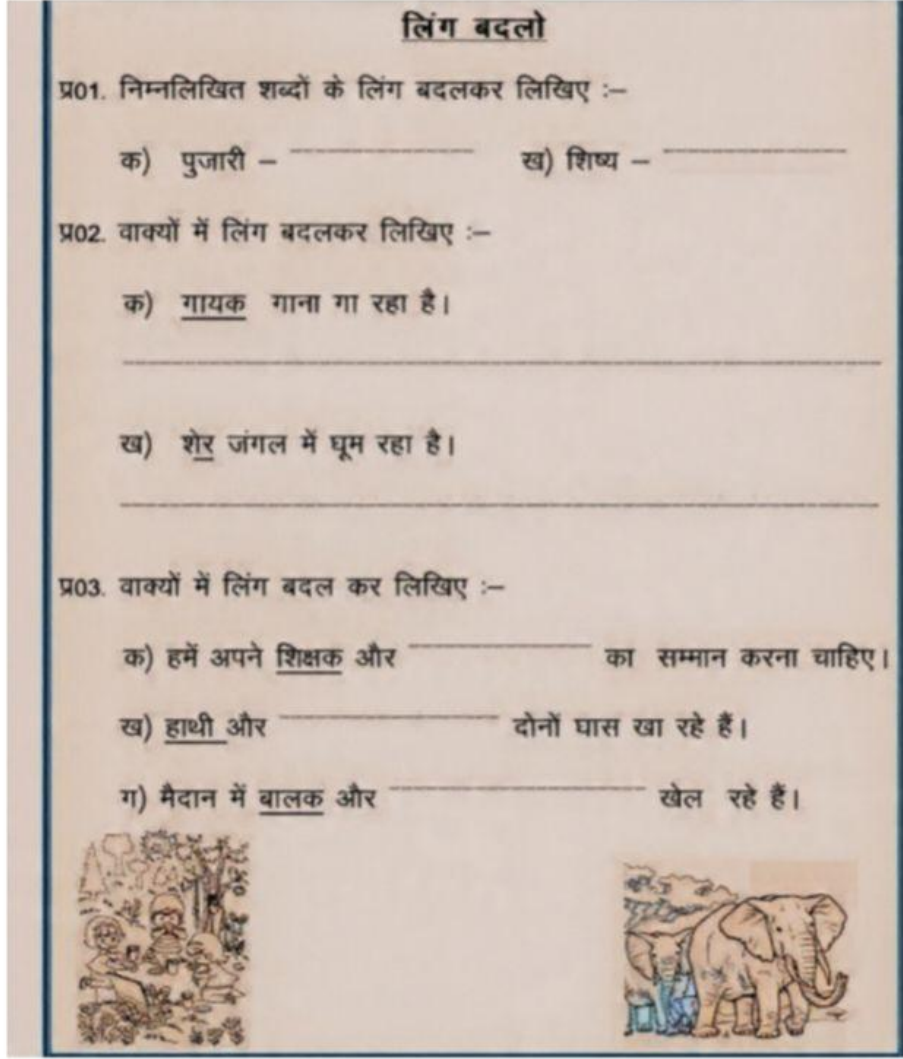 लिंग बदलो
प्र01. निम्नलिखित शब्दों के लिंग बदलकर लिखिए :–
क) पुजारी – ---------------- ख) शिष्य – ----------------
प्र02. वाक्यों में लिंग बदलकर लिखिए :–
क) गायक गाना गा रहा है।
ख) शेर जंगल में घूम रहा है।
प्र03. वाक्यों में लिंग बदल कर लिखिए :–
क) हमें अपने शिक्षक और ---------------- का सम्मान करना चाहिए।
ख) हाथी और ---------------- दोनों घास खा रहे हैं।
ग) मैदान में बालक और ---------------- खेल रहे हैं।